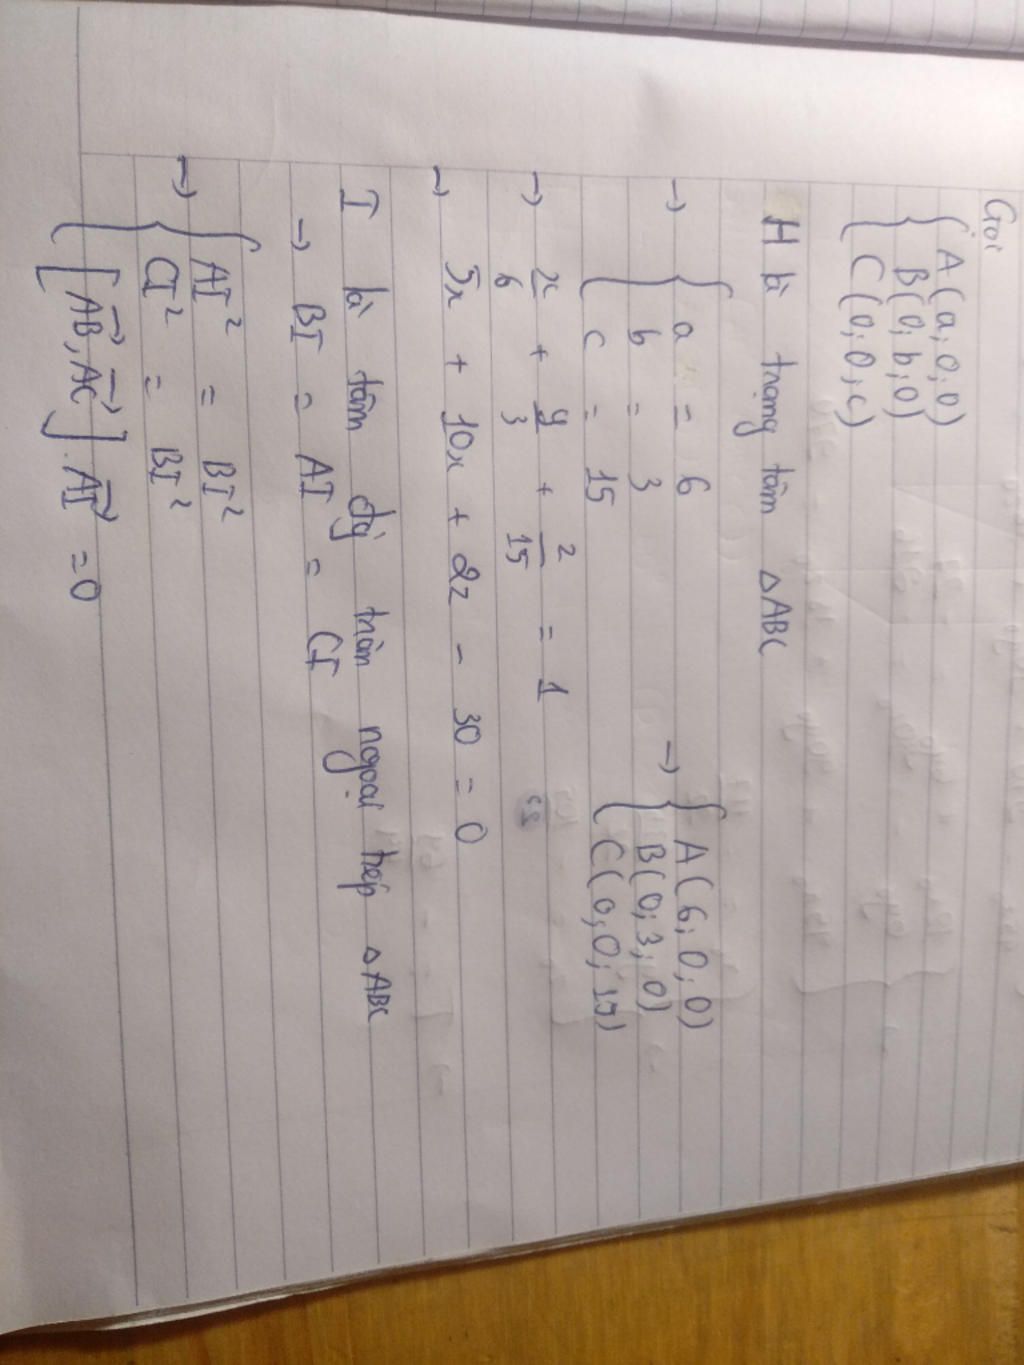 Gọi
{ A(a; 0; 0)
B(0; b; 0)
C(0; 0; c)
H là trọng tâm △ABC
→ { a = 6
b = 3
c = 15
→ { A(6; 0; 0)
B(0; 3; 0)
C(0; 0; 15)
→ x/6 + y/3 + z/15 = 1
→ 5x + 10x + 2z - 30 = 0
I là tâm đg tròn ngoại tiếp △ABC
→ BI = AI = CI
→ { AI² = BI²
CI² = BI²
[AB→, AC→].AI→ = 0